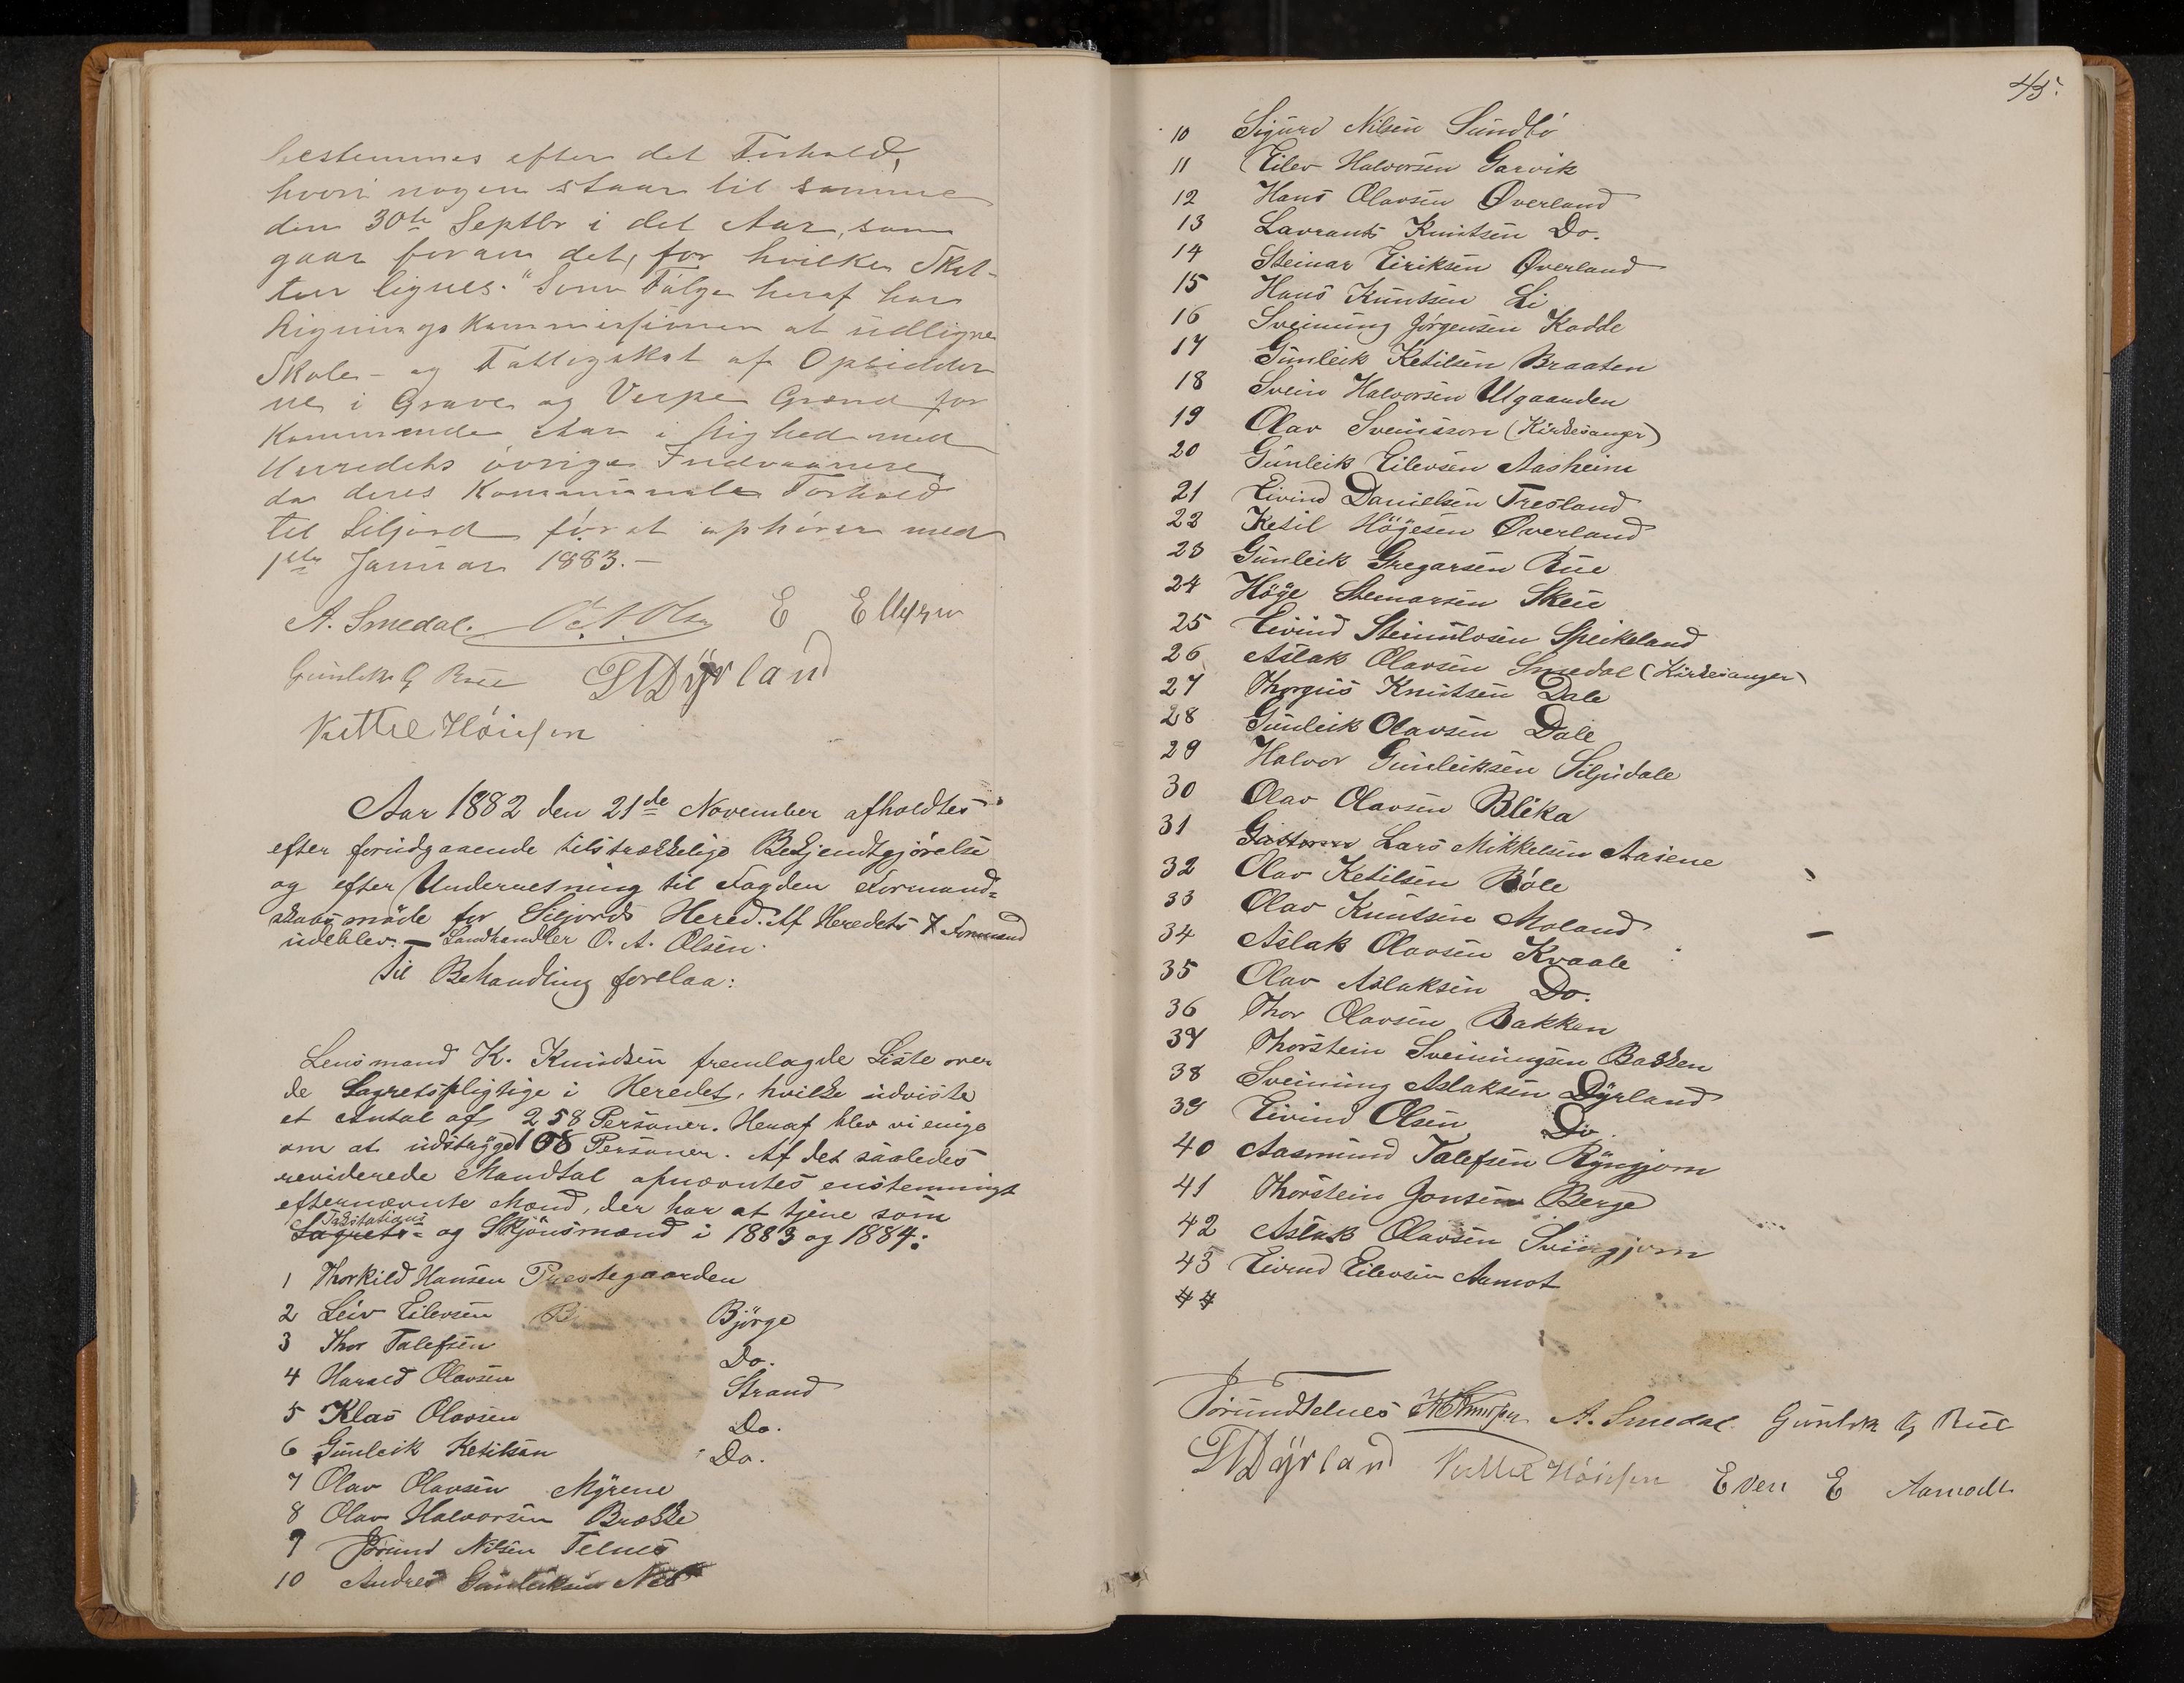 bestemmes efter det Forhold,
hvori nogen staar til samme
den 30te Septbr i det Aar, som
gaar foran det, for hvilke Skat-
ten lignes." Som Fölge heraf har
Ligningskommissionen at udligne
Skole- og Fattigskat af Opsidder
ne i Grave og Verpe Grend for
Kommende Aar i Lighed med
Herredets övrige Indvaanere,
da deres Kommunale Forhold
til Siljord först ophörer med
1ste Januar 1883.-
A. Smedal. O. A. Olsen E E
Gunleik G Rue Dÿrland
Kettel Höiesen
Aar 1882 den 21de November afholdtes
efter forudgaaende tilstrækkelige Bekjendtgjörelse
og efter Underretning til Fogden Formand=
skabsmöde for Siljords Hered. Af Heredets 7 Formænd
udeblev: - Landhandler O. A. Olsen.
Til Behandling forelaa:
Lensmand K. Knudsen fremlagde Liste over
de Lagretspligtige i Heredet, hvilke udviste
et Antal af 258 Personer. Heraf blev vi enige
om at udstryge 108 Personer. Af det saaledes
reviderede Mandtal opnævntes enstemmigt
efternævnte Mænd, der har at tjene som
Takstations
Lagrets- og Skjönsmænd i 1883 og 1884:
1 Thorkild Hansen Prestegaarden
2 Leiv Eilevsen Bjørge
3 Thor Talefsen Do.
4 Harald Olavsen Strand
5 Klas Olavsen Do.
6 Gunleik Ketilsen Do.
7 Olav Olavsen Mÿrene
8 Olav Halvorsen Brække
9 Jörund Nilsen Telnes
10 Andres Gunleiksen Nes
45.
10 Sigurd Nilsen Sundbö
11 Eilev Halvorsen Garvik
12 Hans Olavsen Øverland
13 Lavrants Knutsen Do.
14 Steinar Eiriksen Øverland
15 Hans Knutsen Li
16 Sveinung Jörgensen Kodde
17 Gunleik Ketilsen Braaten
18 Svein Halvorsen Utgaarden
19 Olav Sveinsson (Kirkesanger)
20 Gunleik Eilevsen Aasheim
21 Eivind Danielsen Tresland
22 Ketil Höÿesen Øverland
23 Gunleik Gregarsen Rue
24 Höÿe Steinarsen Skeie
25 Eivind Steinulvsen Speikeland
26 Aslak Olavsen Smedal (Kirkesanger)
27 Thorgus Knutsen Dale
28 Gunleik Olavsen Dale
29 Halvor Gunleiksen Siljudale
30 Olav Olavsen Blika
31 Lars Mikkelsen Aasene
32 Olav Ketilsen Böle
33 Olav Knutsen Moland
34 Aslak Olavsen Kvaale
35 Olav Aslaksen Do.
36 Thor Olavsen Bakken
37 Thorstein Sveinungsen Bakken
38 Sveinung Aslaksen Dÿrland
39 Eivind Olsen Do.
40 Aasmund Talefsen Rÿngjom
41 Thorstein Jonsen Berge
42 Aslak Olavsen Svingjom
43 Eivind Eilevsen Aamot
44
Jörund Telnes A. Smedal. Gunleik G Rue
Dÿrland Kettel Höiesen Even E Aamodt